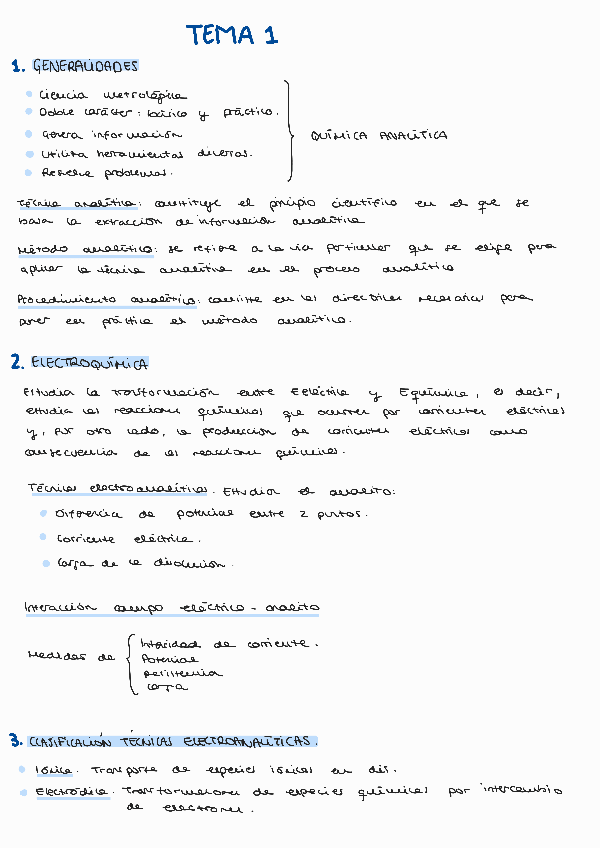 TEMA 1
1. GENERALIDADES
Ciencia metrológica
Doble carácter: teórico y práctico.
Genera información
Utiliza herramientas diversas.
Resuelve problemas.
QUÍMICA ANALÍTICA
Técnica analítica: constituye el principio científico en el que se
basa la extracción de información analítica
Método analítico: se refiere a la vía particular que se elige para
aplicar la técnica analítica en el proceso analítico
Procedimiento analítico: consiste en las directrices necesarias para
poner en práctica el método analítico.
2. ELECTROQUÍMICA
Estudia la transformación entre Eeléctrica y Equímica, es decir,
estudia las reacciones químicas que ocurren por corrientes eléctricas
y, por otro lado, la producción de corrientes eléctricas como
consecuencia de las reacciones químicas.
Técnicas electroanalíticas. Estudian el analito:
Diferencia de potencial entre 2 puntos.
Corriente eléctrica.
Carga de la disolución.
Interacción campo eléctrico - analito
Medidas de
Intensidad de corriente.
Potencial
Resistencia
Carga
3. CLASIFICACIÓN TÉCNICAS ELECTROANALÍTICAS.
Iónica. Transporte de especies iónicas en dis.
Electródica. Transformaciones de especies químicas por intercambio
de electrones.